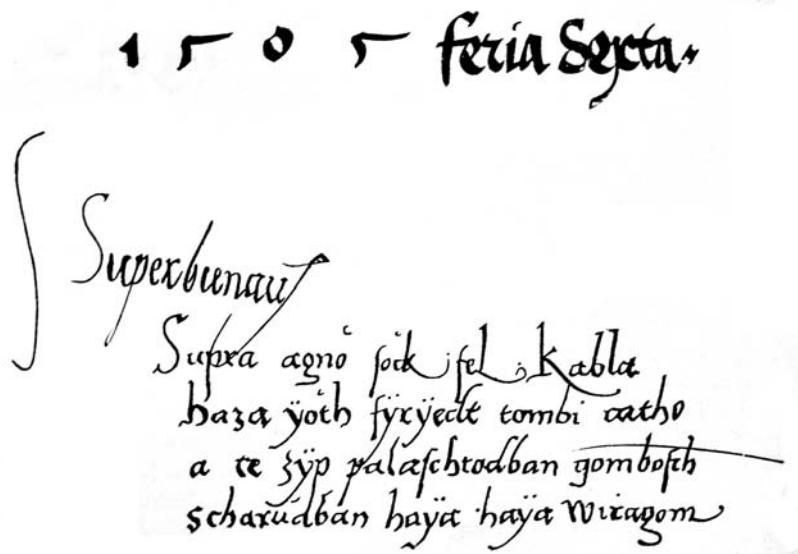 1505 feria Sexta.
Supra agnö ſöck fel Kabla
haza ÿöth fÿrÿedt tombi catho
a te zÿp palaſchtodban gomboſch
scharudban haÿa haÿa wiragom